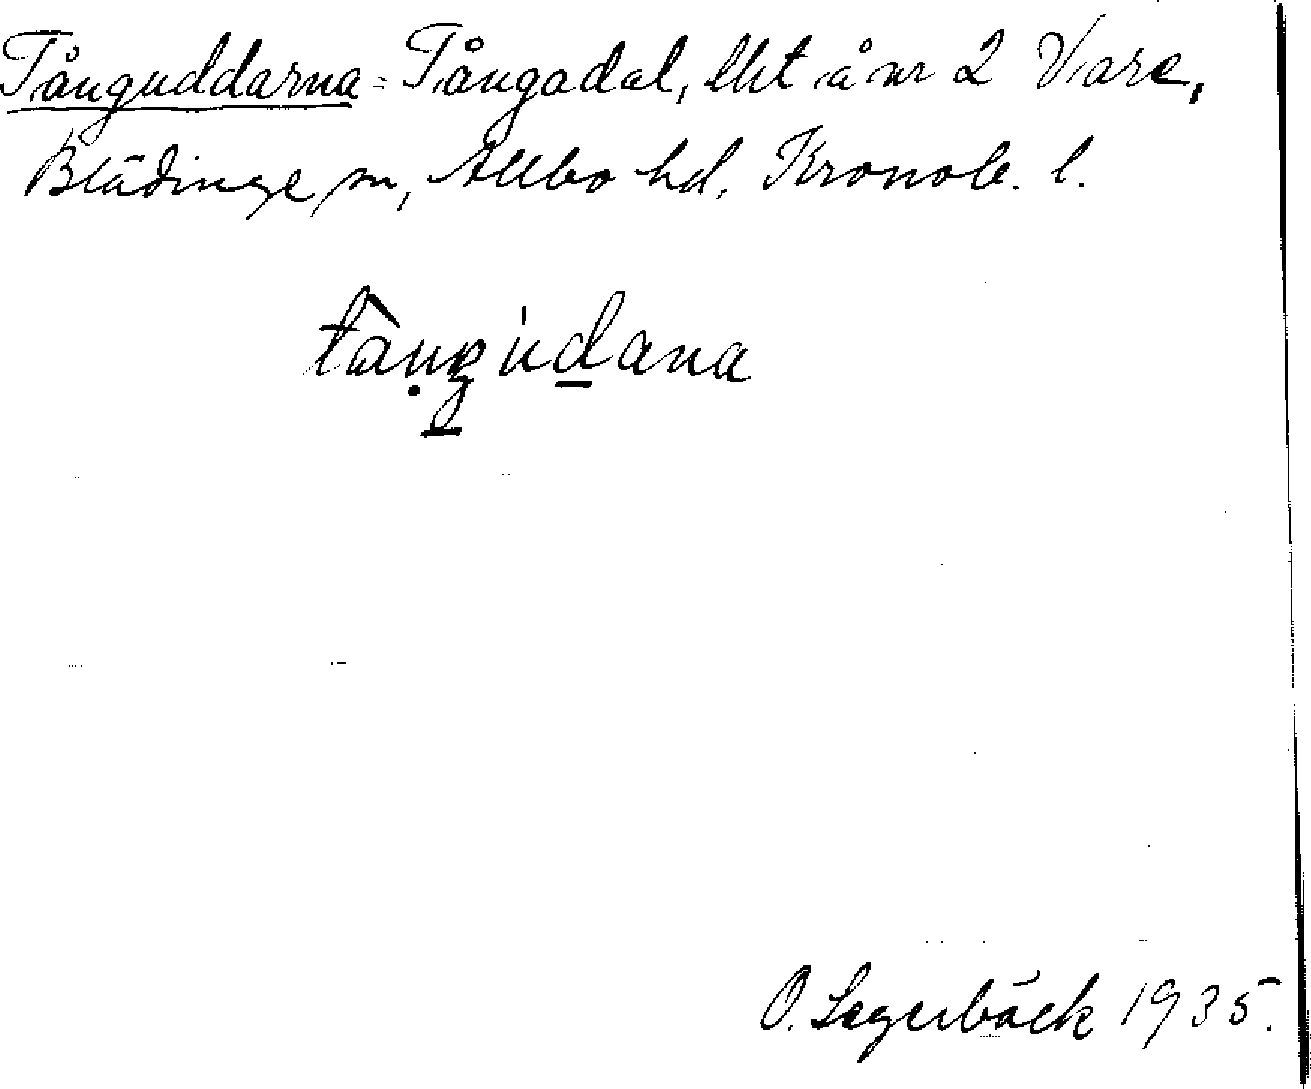 Tånguddarna = Tångadal, lht å nr 2 Vare,
Blädinge sn, Allbo hd. Kronob. l.
tàngùdana
O. Lagerbäck 1935.